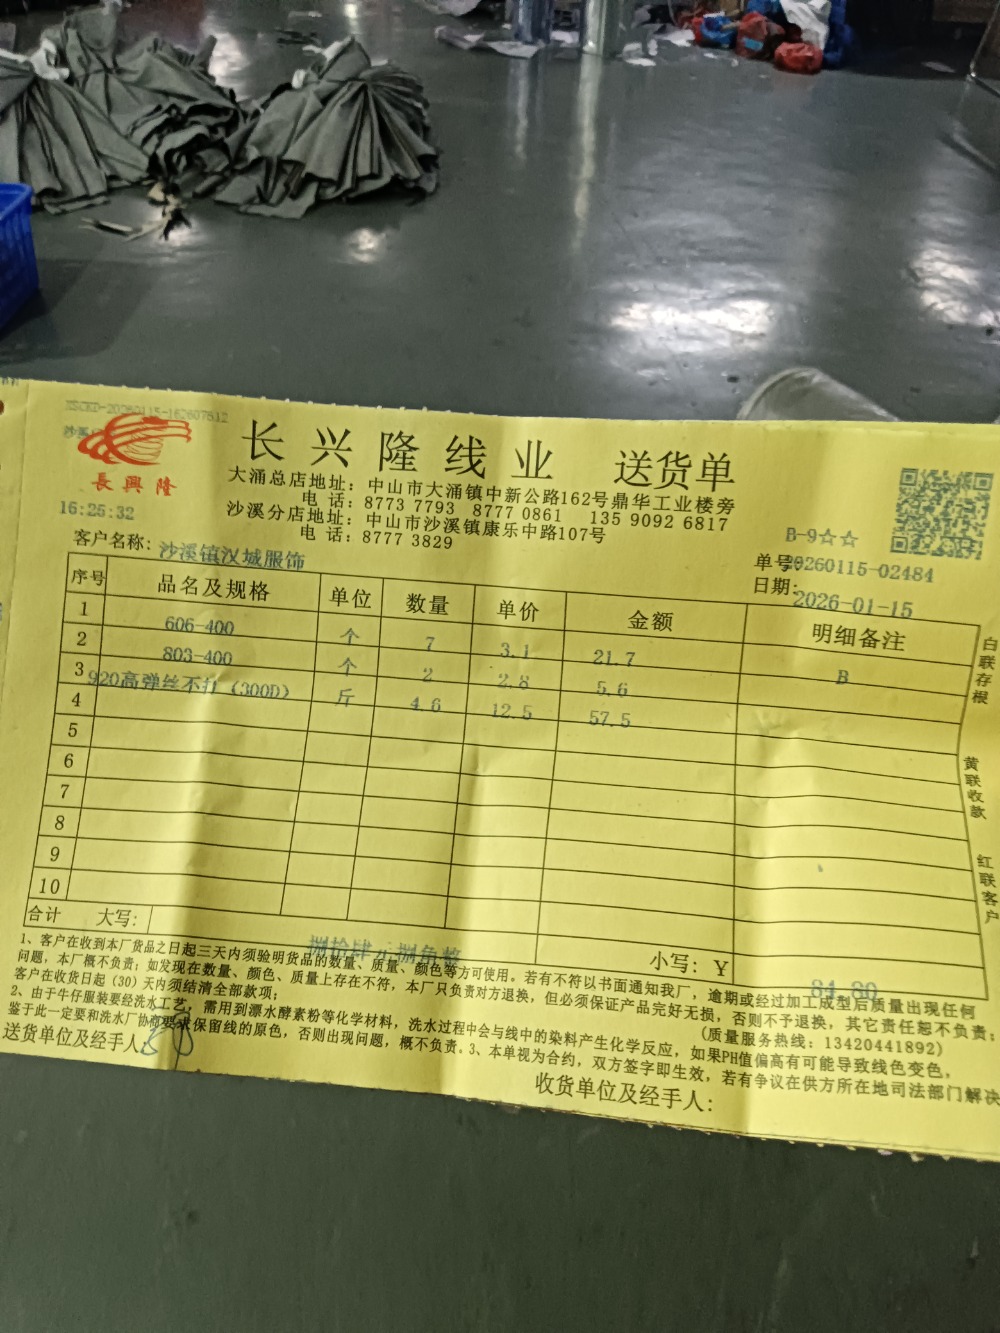 XSCKD-20260115-162607612
長興隆
长兴隆线业 送货单
大涌总店地址：中山市大涌镇中新公路162号鼎华工业楼旁
电话：8773 7793 8777 0861 135 9092 6817
沙溪分店地址：中山市沙溪镇康乐中路107号
电话：8777 3829
16:25:32
B-9☆☆
客户名称：沙溪镇汉城服饰
单号：20260115-02484
日期：2026-01-15
序号 品名及规格 单位 数量 单价 金额 明细备注
1 606-400 个 7 3.1 21.7 B
2 803-400 个 2 2.8 5.6
3 920高弹丝不打（300D） 斤 4.6 12.5 57.5
4
5
6
7
8
9
10
合计 大写：捌拾肆元捌角整 小写：¥ 84.80
白联存根
黄联收款
红联客户
1、客户在收到本厂货品之日起三天内须验明货品的数量、质量、颜色等方可使用。若有不符以书面通知我厂，逾期或经过加工成型后质量出现任何
问题，本厂概不负责；如发现在数量、颜色、质量上存在不符，本厂只负责对方退换，但必须保证产品完好无损，否则不予退换，其它责任恕不负责；
客户在收货日起（30）天内须结清全部款项； (质量服务热线：13420441892)
2、由于牛仔服装要经洗水工艺，需用到漂水酵素粉等化学材料，洗水过程中会与线中的染料产生化学反应，如果PH值偏高有可能导致线色变色，
鉴于此一定要和洗水厂协商要求保留线的原色，否则出现问题，概不负责。3、本单视为合约，双方签字即生效，若有争议在供方所在地司法部门解决
送货单位及经手人：
收货单位及经手人：